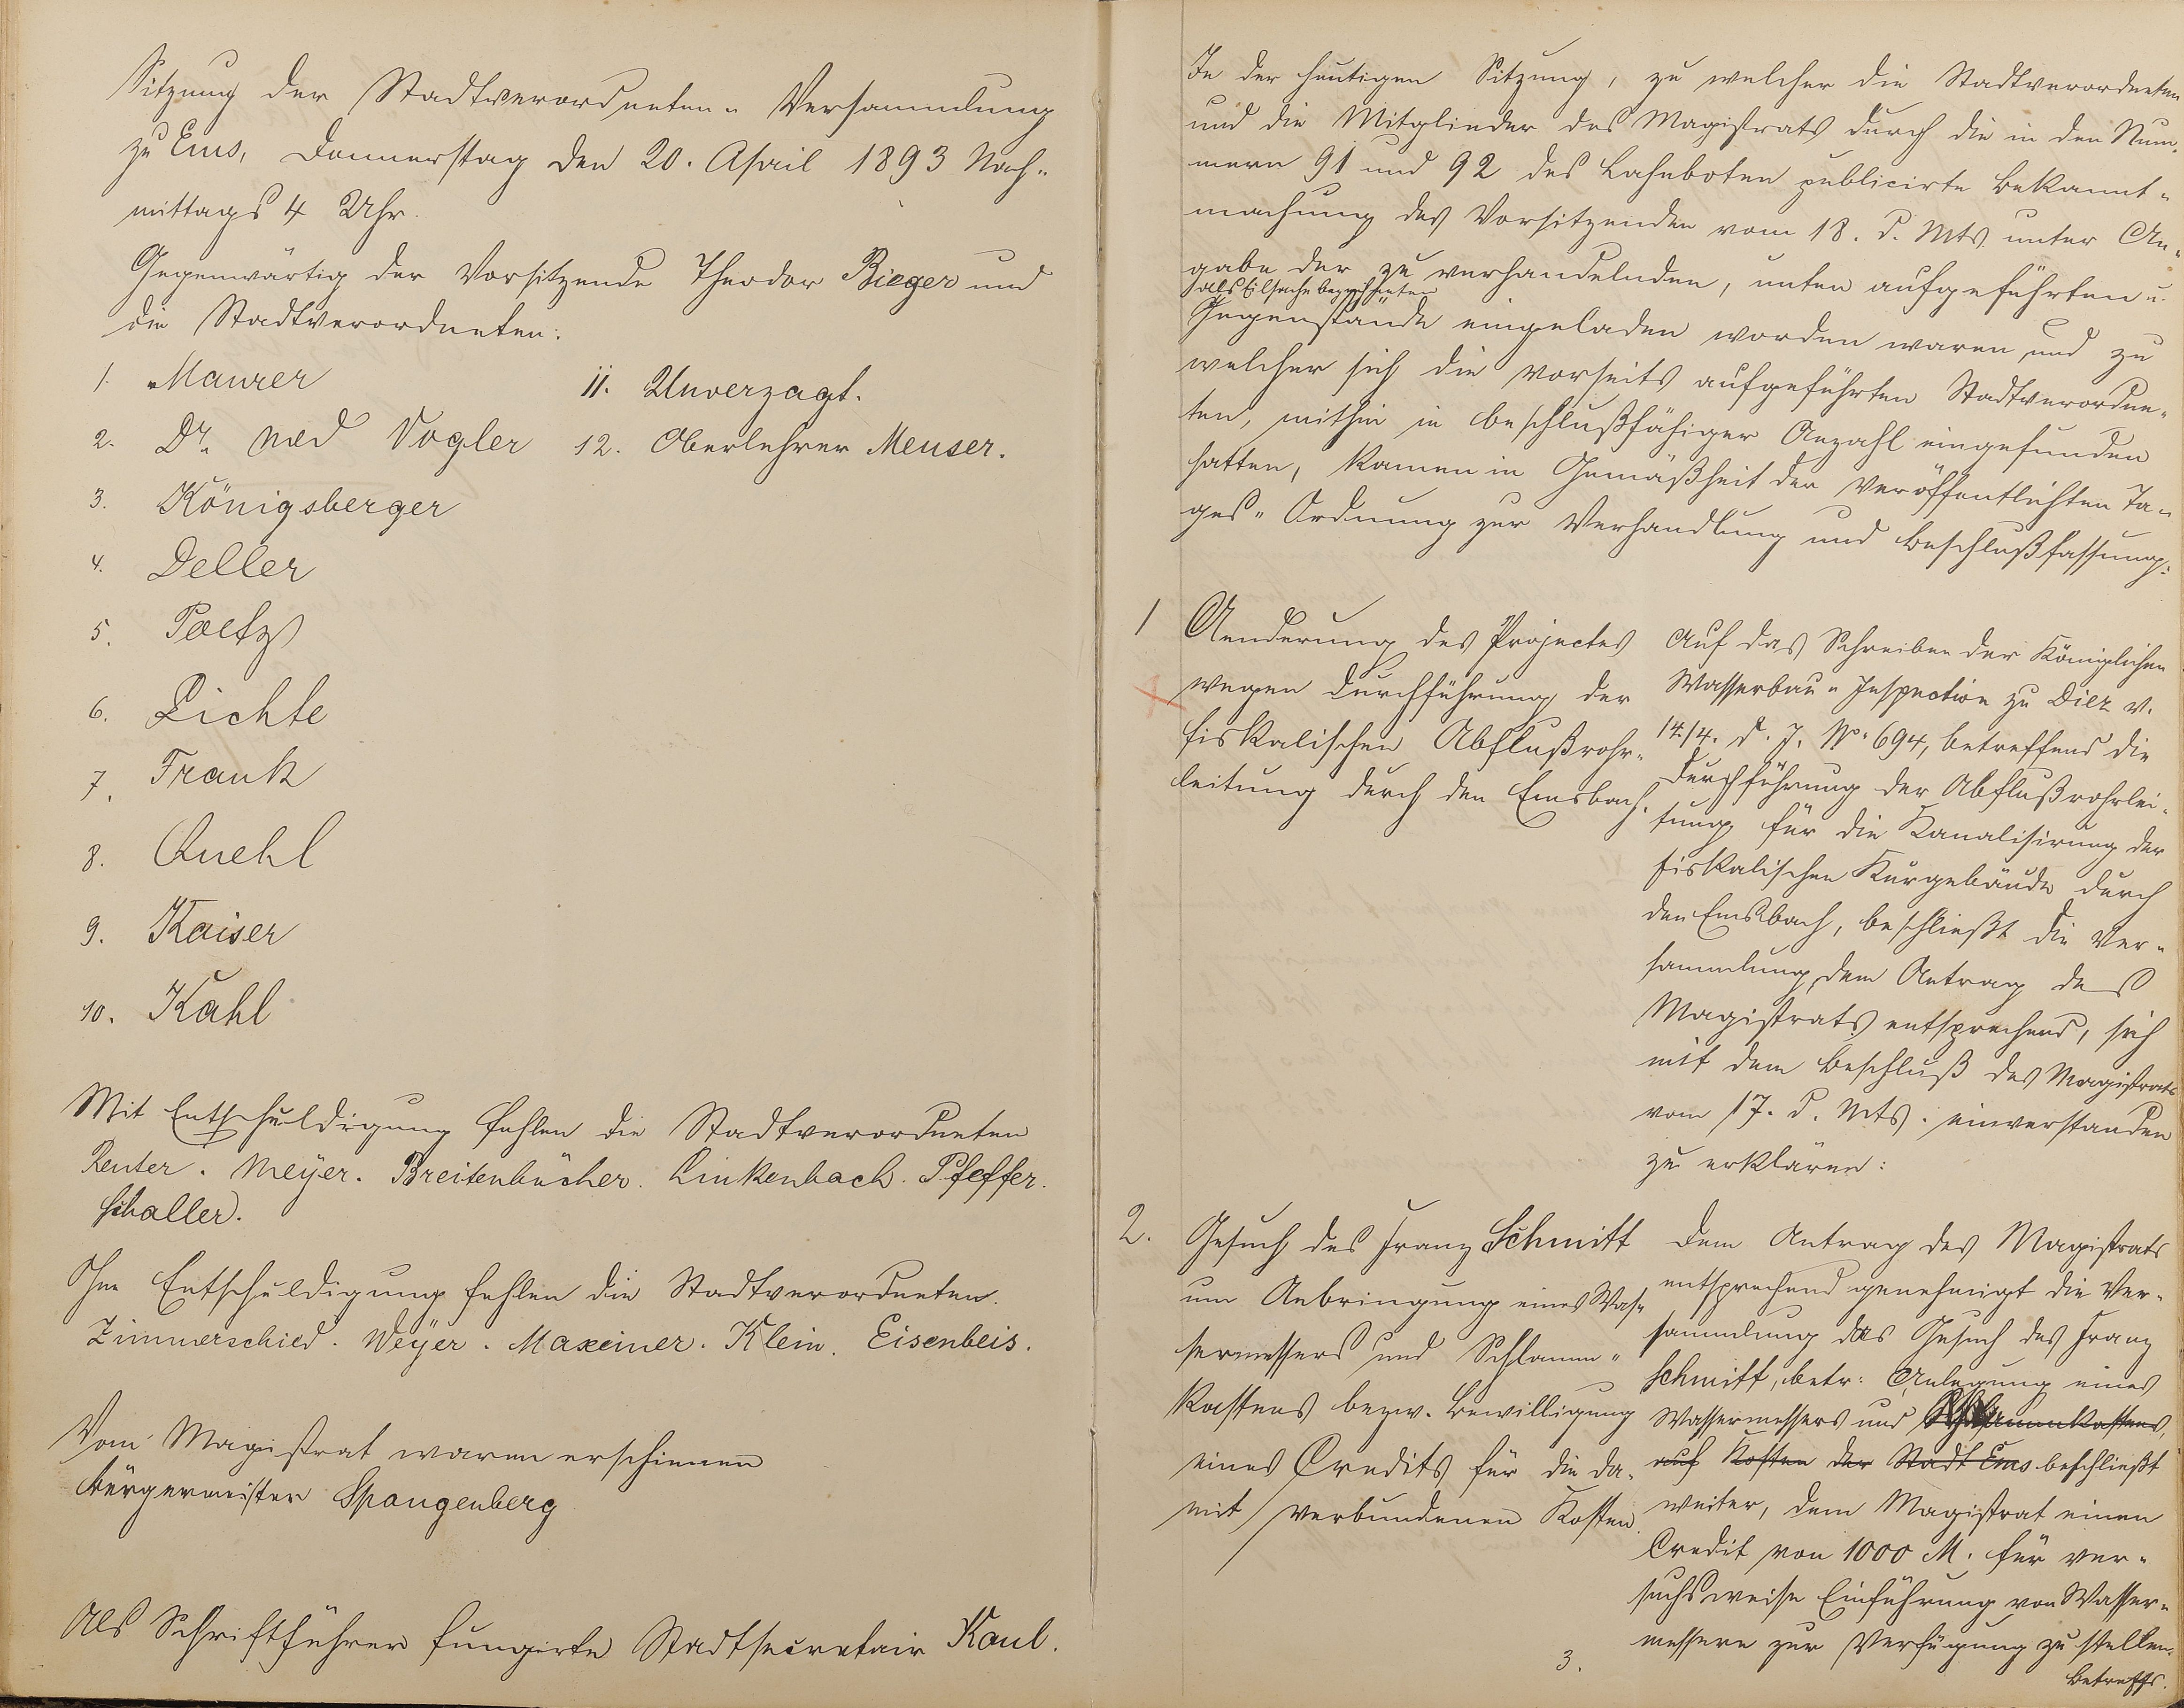 Sitzung der Stadtverordneten-Versammlung
zu Ems, Donnerstag den 20. April 1893 Nach-
mittags 4 Uhr.
Gegenwärtig der Vorsitzende Theodor Bieger und
die Stadtverordneten:
1. Maurer
2. Dr. med Vogler
3. Königsberger
4. Deller
5. Poetz
6. Lichte
7. Frank
8. Quehl
9. Kaiser
10. Kahl
11. Unverzagt.
12. Oberlehrer Meuser.
Mit Entschuldigung fehlen die Stadtverordneten
Reuter. Meyer. Breitenbücher. Linkenbach. Pfeffer.
Schaller.
Ohne Entschuldigung fehlen die Stadtverordneten.
Zimmerschied. Weyer. Maxeiner. Klein. Eisenbeis.
Vom Magistrat waren erschienen
Bürgermeister Spangenberg
Als Schriftführer fungirte Stadtsecretair Kaul.
In der heutigen Sitzung, zu welcher die Stadtverordneten
und die Mitglieder des Magistrats durch die in den Num-
mern 91 und 92 des Lahnboten publicirte Bekannt-
machung des Vorsitzenden vom 18. d. Mts. unter An-
gabe der zu verhandelnden, unten aufgeführten u.
als Eilsache bezeichneten
Gegenstände eingeladen worden waren und zu
welcher sich die vorseits aufgeführten Stadtverordne-
ten, mithin in beschlußfähiger Anzahl eingefunden
hatten, kamen in Gemäßheit der veröffentlichten Ta-
ges-Ordnung zur Verhandlung und Beschlußfassung:
1 Aenderung des Projectes
wegen Durchführung der
fiskalischen Abflußrohr-
leitung durch den Emsbach.
Auf das Schreiben der Königlichen
Wasserbau-Inspection zu Diez v.
14/4. d. J. No. 694, betreffend die
Durchführung der Abflußrohrlei-
tung für die Kanalisirung der
fiskalischen Kurgebäude durch
den Emsbach, beschließt die Ver-
sammlung, dem Antrag des
Magistrats entsprechend, sich
mit dem Beschluß des Magistrats
vom 17. d. Mts. einverstanden
zu erklären:
2. Gesuch des Franz Schmitt
um Anbringung eines Was-
sermessers und Schlamm-
kastens bezw. Bewilligung
eines Credits für die da-
mit verbundenen Kosten.
Dem Antrag des Magistrats
entsprechend genehmigt die Ver-
sammlung das Gesuch des Franz
Schmitt, betr: Anlegung eines
Wassermessers und Schlammkastens,
auf Kosten der Stadt Ems beschließt
weiter, dem Magistrat einen
Credit von 1000 M. für ver-
suchsweise Einführung von Wasser-
messern zur Verfügung zu stellen.
3.
Betreffs.